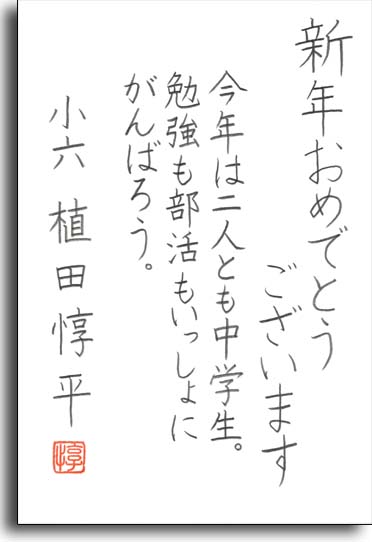 新年おめでとう
ございます
今年は二人とも中学生。
勉強も部活もいっしょに
がんばろう。
小六 植田惇平
惇